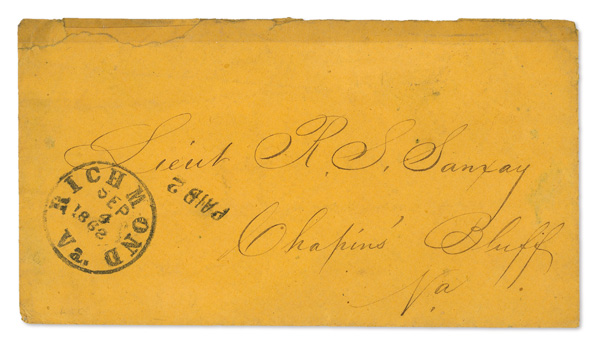 Lieut R. S. Sanxay
RICHMOND Va.
SEP
4
1862
PAID 2
Chapins' Bluff
Va